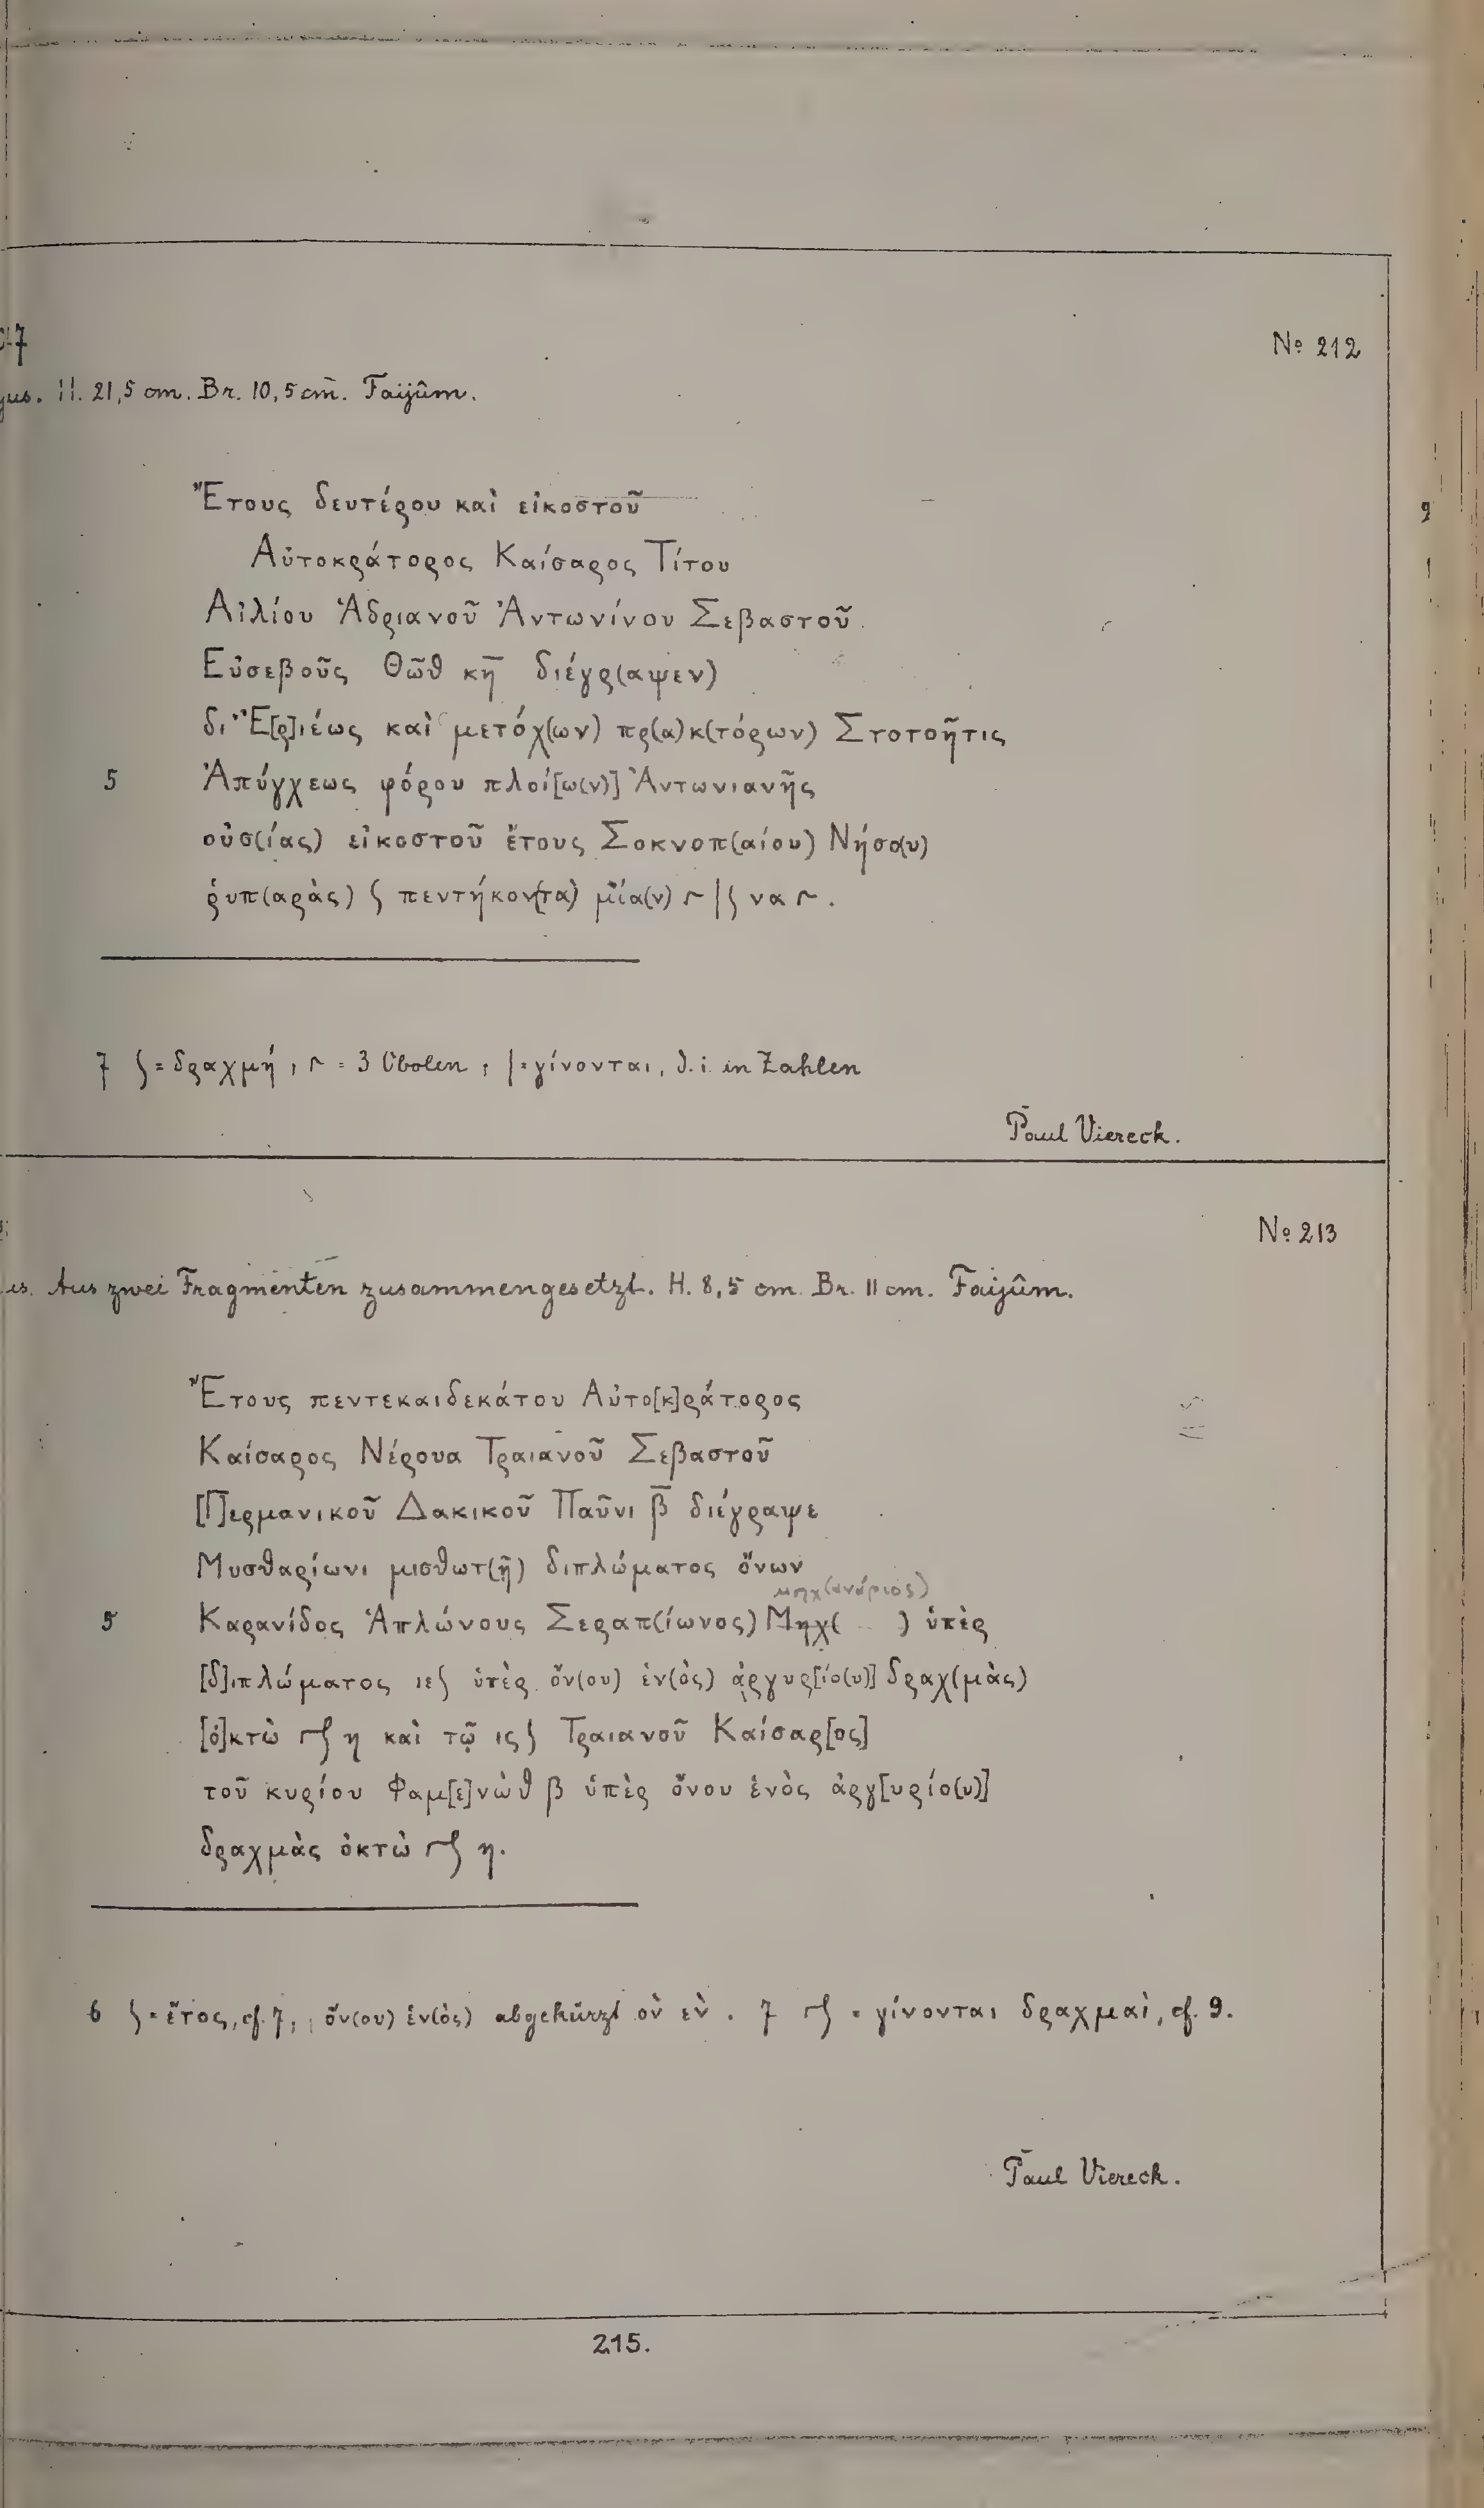 No 212
H. 21,5 cm. Br. 10,5 cm. Faijûm.
Ἔτους δευτέρου καὶ εἰκοστοῦ
Αὐτοκράτορος Καίσαρος Τίτου
Αἰλίου Ἁδριανοῦ Ἀντωνίνου Σεβαστοῦ
Εὐσεβοῦς Θῶθ κη̅ διέγρ(αψεν)
δι' Ἑ[ρ]ιέως καὶ μετόχ(ων) πρ(α)κ(τόρων) Στοτοῆτις
5 Ἀπύγχεως φόρου πλοί[ω(ν)] Ἀντωνιανῆς
οὐσ(ίας) εἰκοστοῦ ἔτους Σοκνοπ(αίου) Νήσο(υ)
ῥυπ(αρὰς) ʃ πεντήκον(τα) μία(ν) 𐅁 |ʃ να 𐅁.
7 ʃ = δραχμή, 𐅁 = 3 Obolen, | = γίνονται, d. i. in Zahlen
Paul Viereck.
No 213
Aus zwei Fragmenten zusammengesetzt. H. 8,5 cm. Br. 11 cm. Faijûm.
Ἔτους πεντεκαιδεκάτου Αὐτο[κ]ράτορος
Καίσαρος Νέρουα Τραιανοῦ Σεβαστοῦ
[Γ]ερμανικοῦ Δακικοῦ Παῦνι β̅ διέγραψε
Μυσθαρίωνι μισθωτ(ῇ) διπλώματος ὄνων
μηχ(ανάριος)
5 Καρανίδος Ἁπλώνους Σεραπ(ίωνος) Μηχ( ) ὑπὲρ
[δ]ιπλώματος ιεʃ ὑπὲρ ὄν(ου) ἑν(ὸς) ἀργυρ[ίο(υ)] δραχ(μὰς)
[ὀ]κτὼ 𐅁ʃ η καὶ τῷ ιςʃ Τραιανοῦ Καίσαρ[ος]
τοῦ κυρίου Φαμ[ε]νὼθ β ὑπὲρ ὄνου ἑνὸς ἀργ[υρίο(υ)]
δραχμὰς ὀκτὼ 𐅁ʃ η.
6 ʃ = ἔτος, cf. 7, ὄν(ου) ἑν(ὸς) abgekürzt ον εν. 7 𐅁ʃ = γίνονται δραχμαὶ, cf. 9.
Paul Viereck.
215.